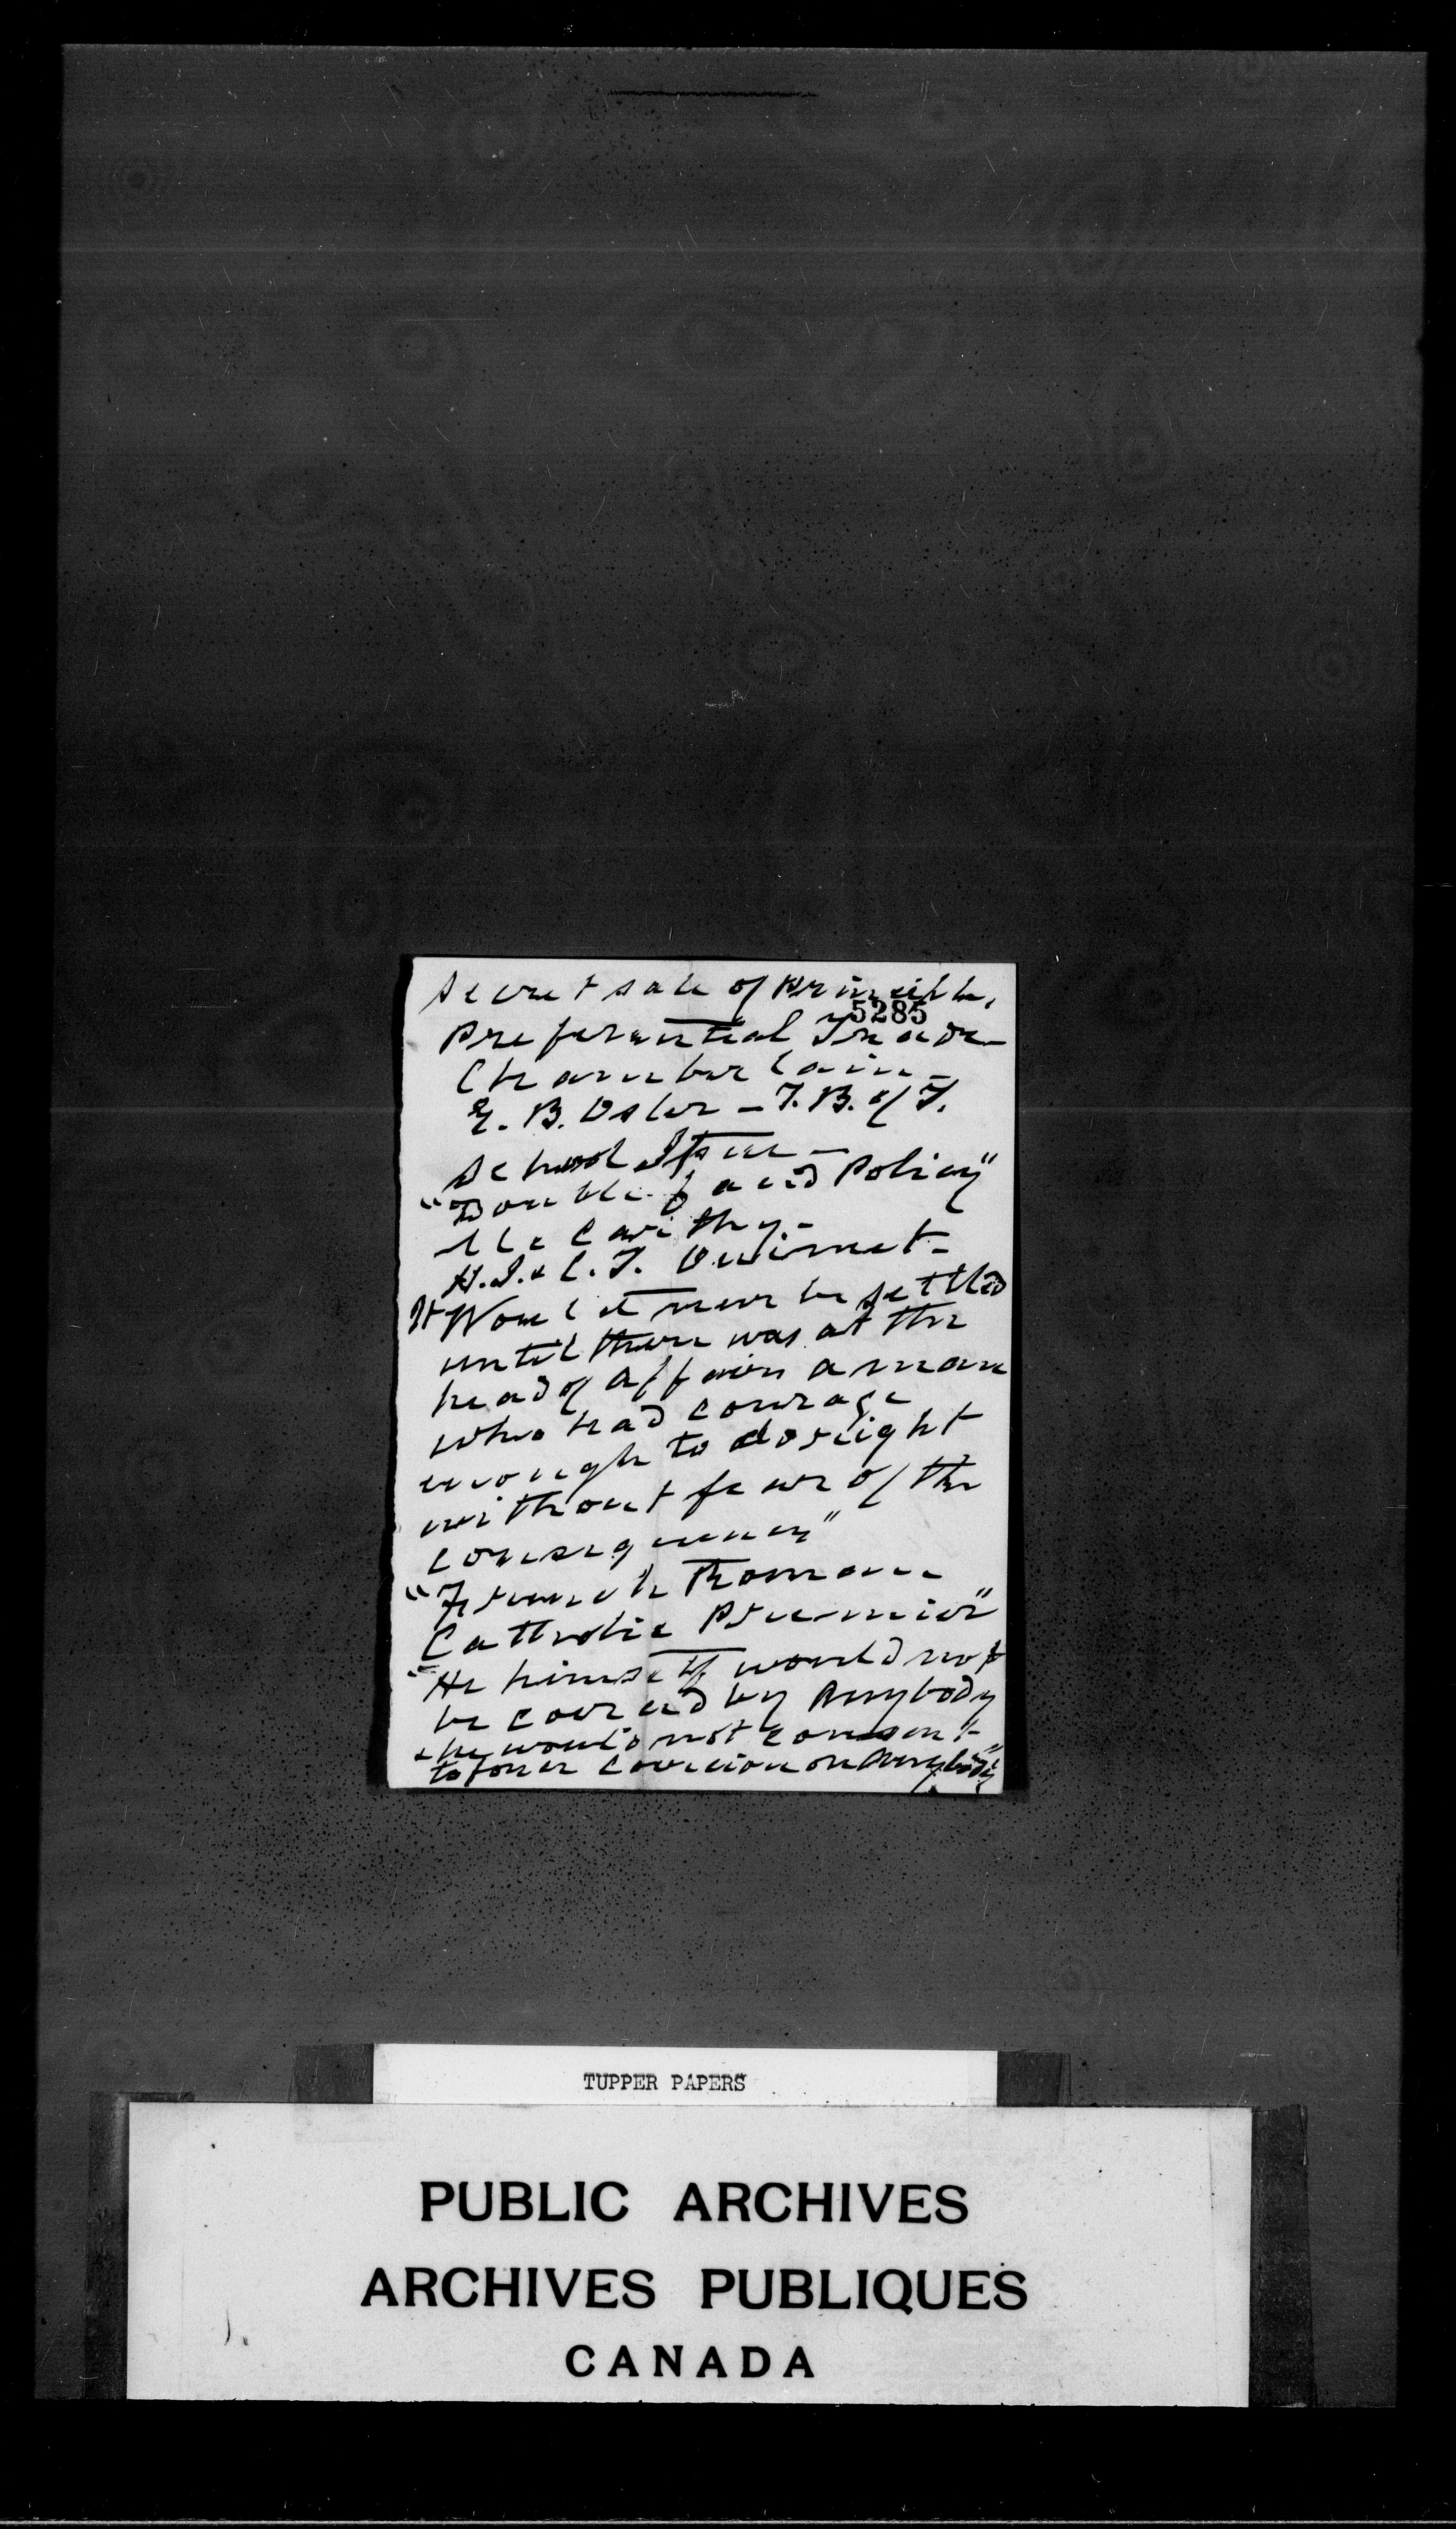 Secret sale of Principle,
5285
Preferential Trade—
Chamberlain—
E. B. Osler — T. B. of T.
School Issue—
"Double faced Policy"
McCarthy—
H. J. & C. T. Ouimet—
It "Would never be settled
until there was at the
head of affairs a man
who had courage
enough to do right
without fear of the
consequences"
"French Roman
Catholic Premier"
"He himself would not
be coerced by Anybody
& he would not consent
to force coercion on Anybody"
TUPPER PAPERS
PUBLIC ARCHIVES
ARCHIVES PUBLIQUES
CANADA